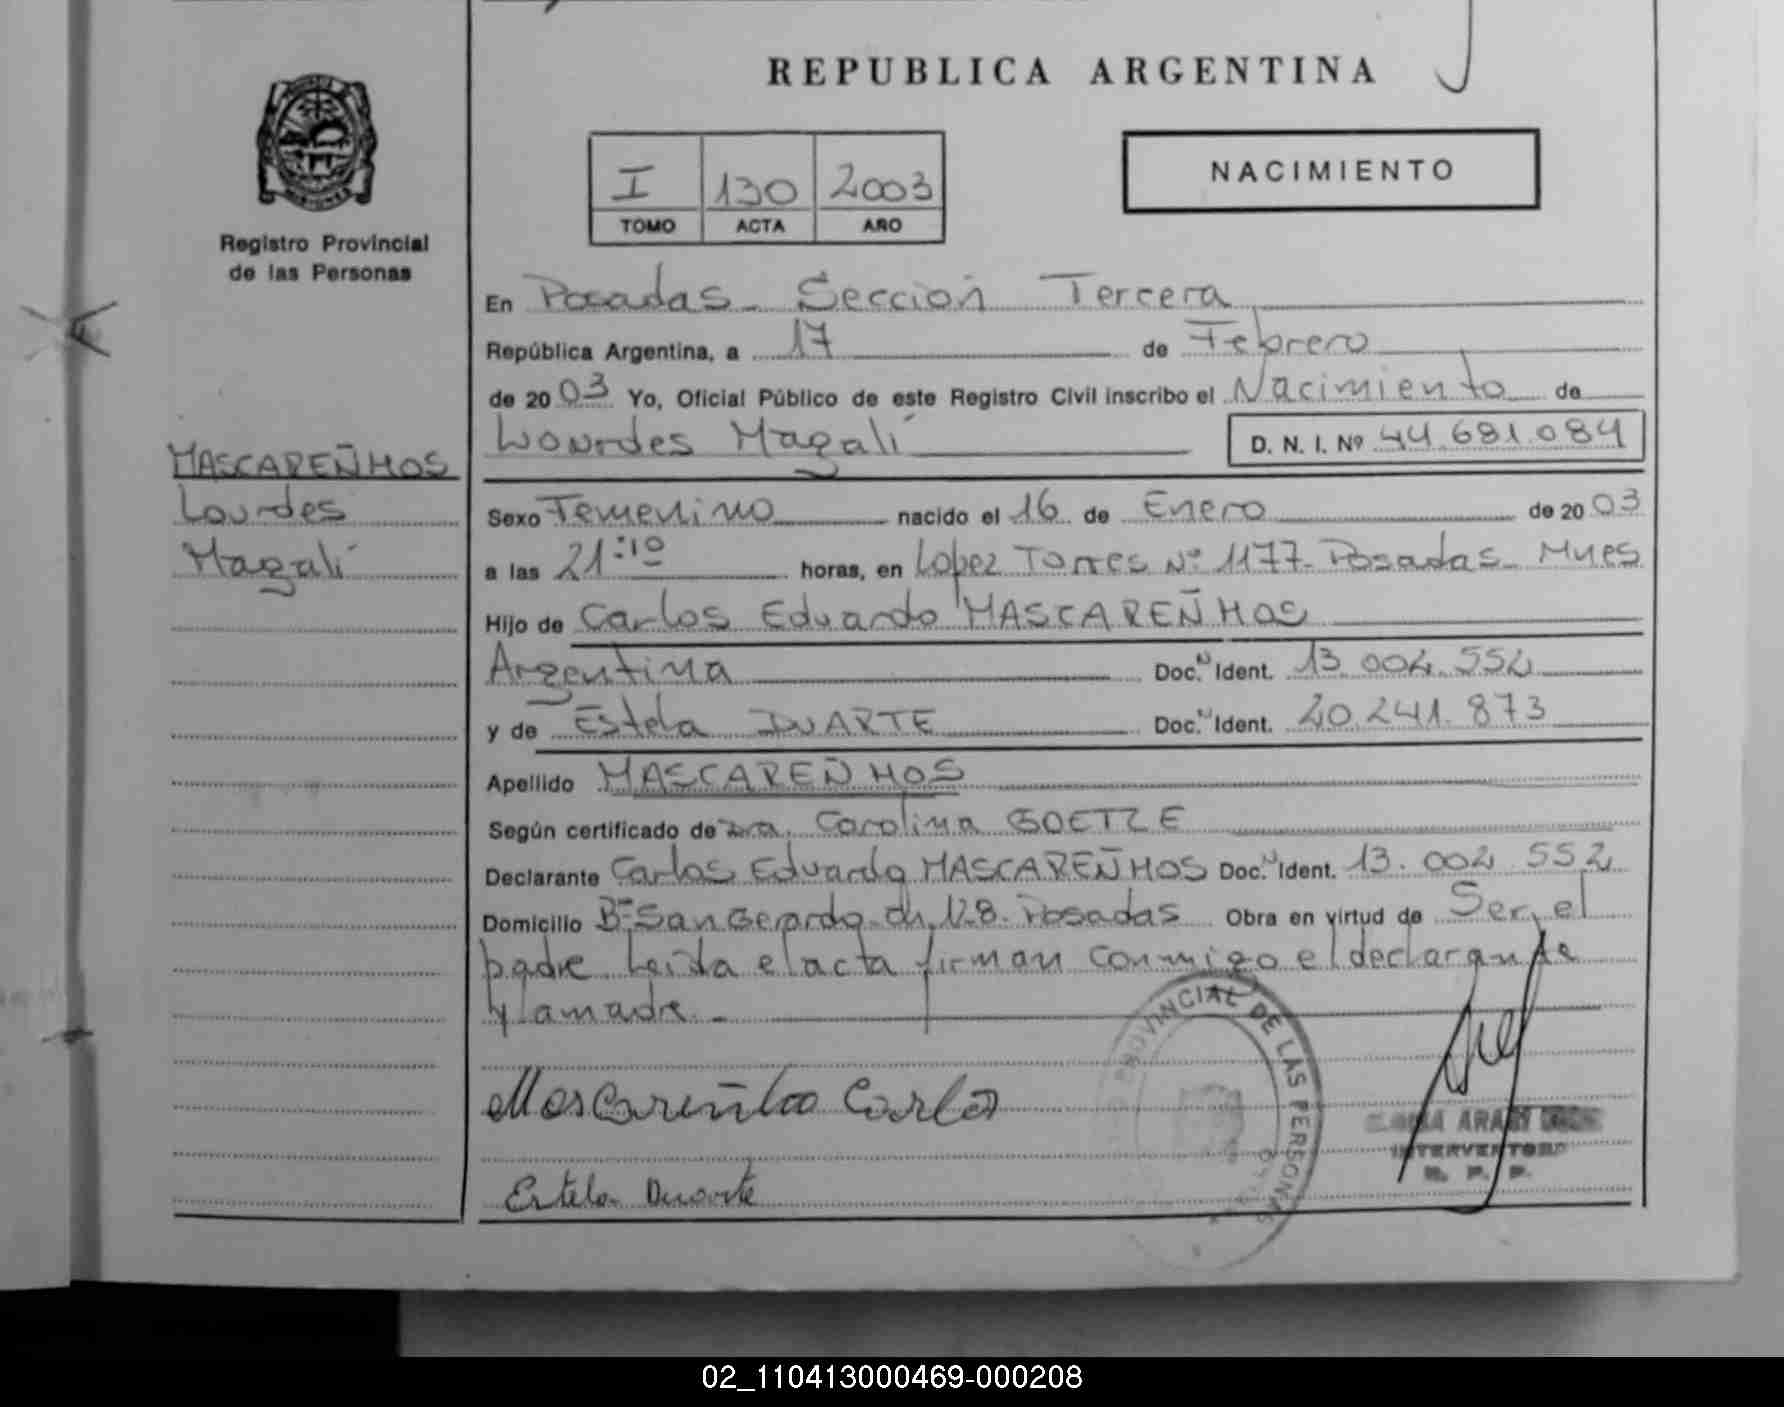 REPUBLICA ARGENTINA
NACIMIENTO
I 130 2003
TOMO ACTA AÑO
Registro Provincial
de las Personas
MASCAREÑHOS
Lourdes
Magalí
En Posadas - Sección Tercera
República Argentina, a 17 de Febrero
de 2003 Yo, Oficial Público de este Registro Civil inscribo el Nacimiento de
Lourdes Magalí D. N. I. Nº 44.681.084
Sexo Femenino nacido el 16 de Enero de 2003
a las 21:10 horas, en Lopez Torres Nº 1177 - Posadas - Mnes
Hijo de Carlos Eduardo MASCAREÑHOS
Argentina Doc. Ident. 13.002.552
y de Estela DUARTE Doc. Ident. 20.241.873
Apellido MASCAREÑHOS
Según certificado de Dra. Carolina GOETZE
Declarante Carlos Eduardo MASCAREÑHOS Doc. Ident. 13.002.552
Domicilio Bº San Gerardo - ch. 128 - Posadas Obra en virtud de Ser el
padre Leída el acta firman conmigo el declarante
y la madre -
Mascareñho Carlos
Estela Duarte
PROVINCIAL DE LAS PERSONAS
INTERVENTORA
R. P. P.
02_110413000469-000208